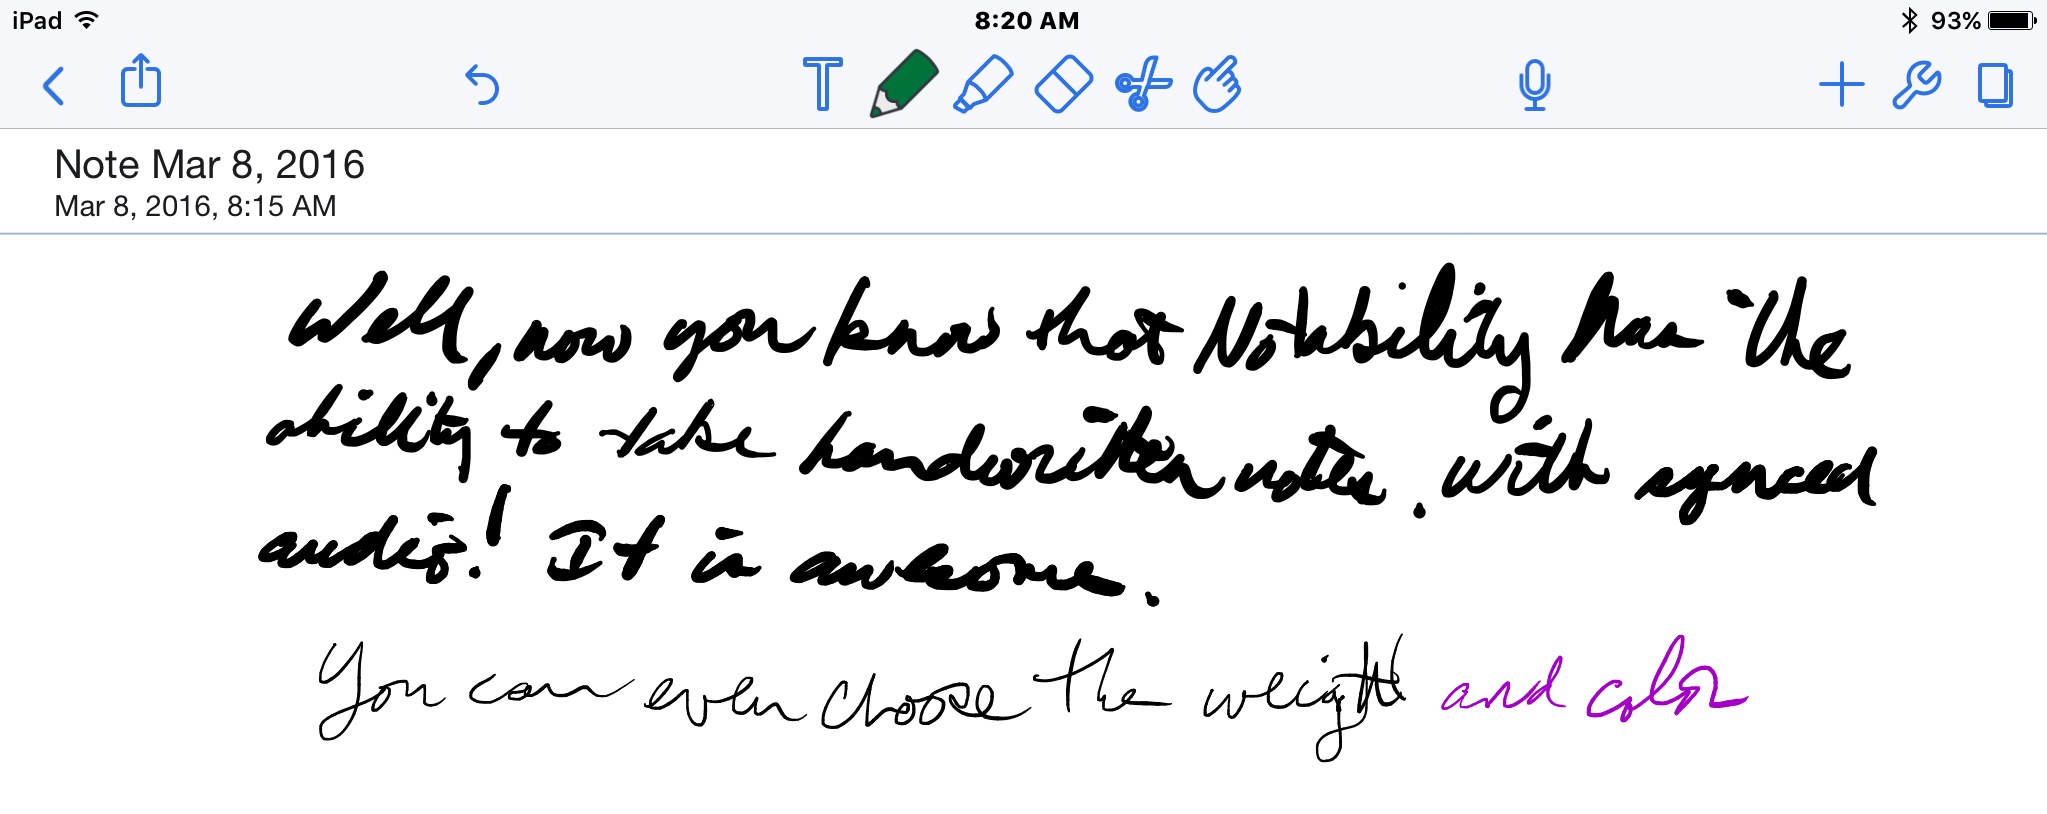 iPad 8:20 AM 93%
Note Mar 8, 2016
Mar 8, 2016, 8:15 AM
Well, now you know that Notability has the
ability to take handwritten notes. with synced
audio! It is awesome.
You can even choose the weight and color